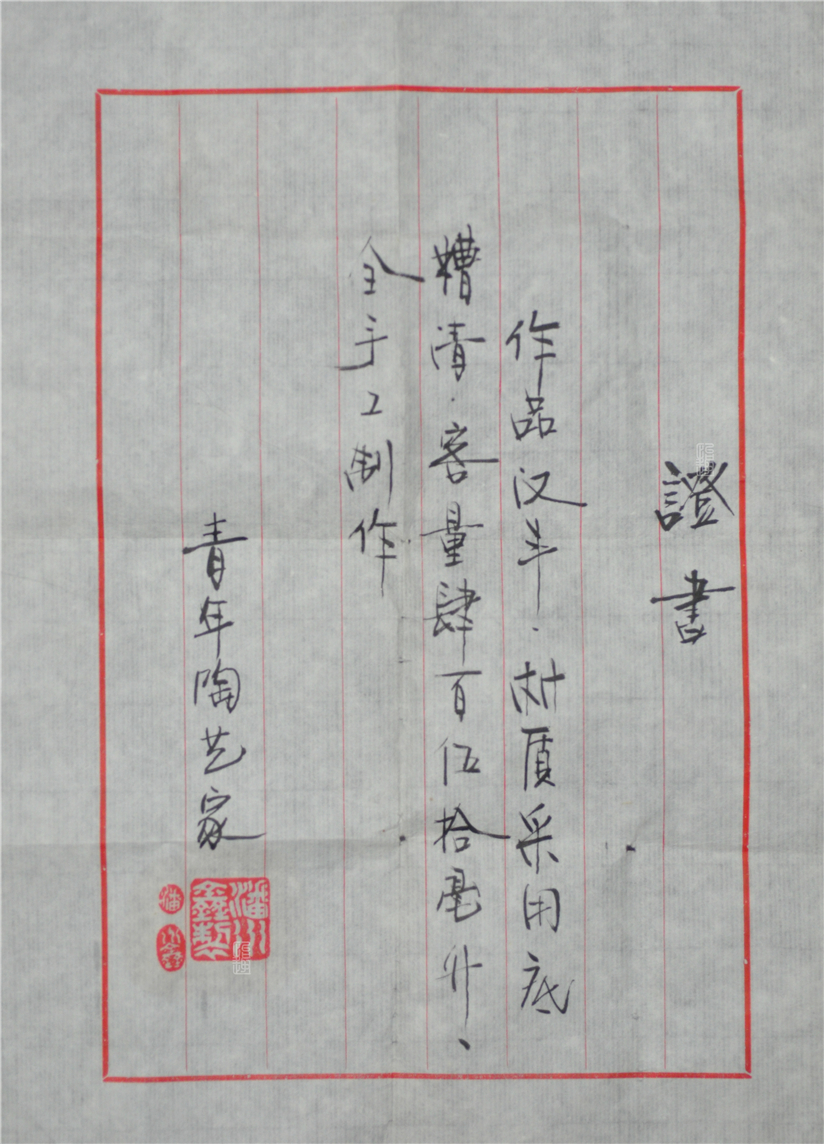 證書
作品汉半、材质采用底
糟清、容量肆百伍拾毫升、
全手工制作
青年陶艺家
潘
鑫製
潘